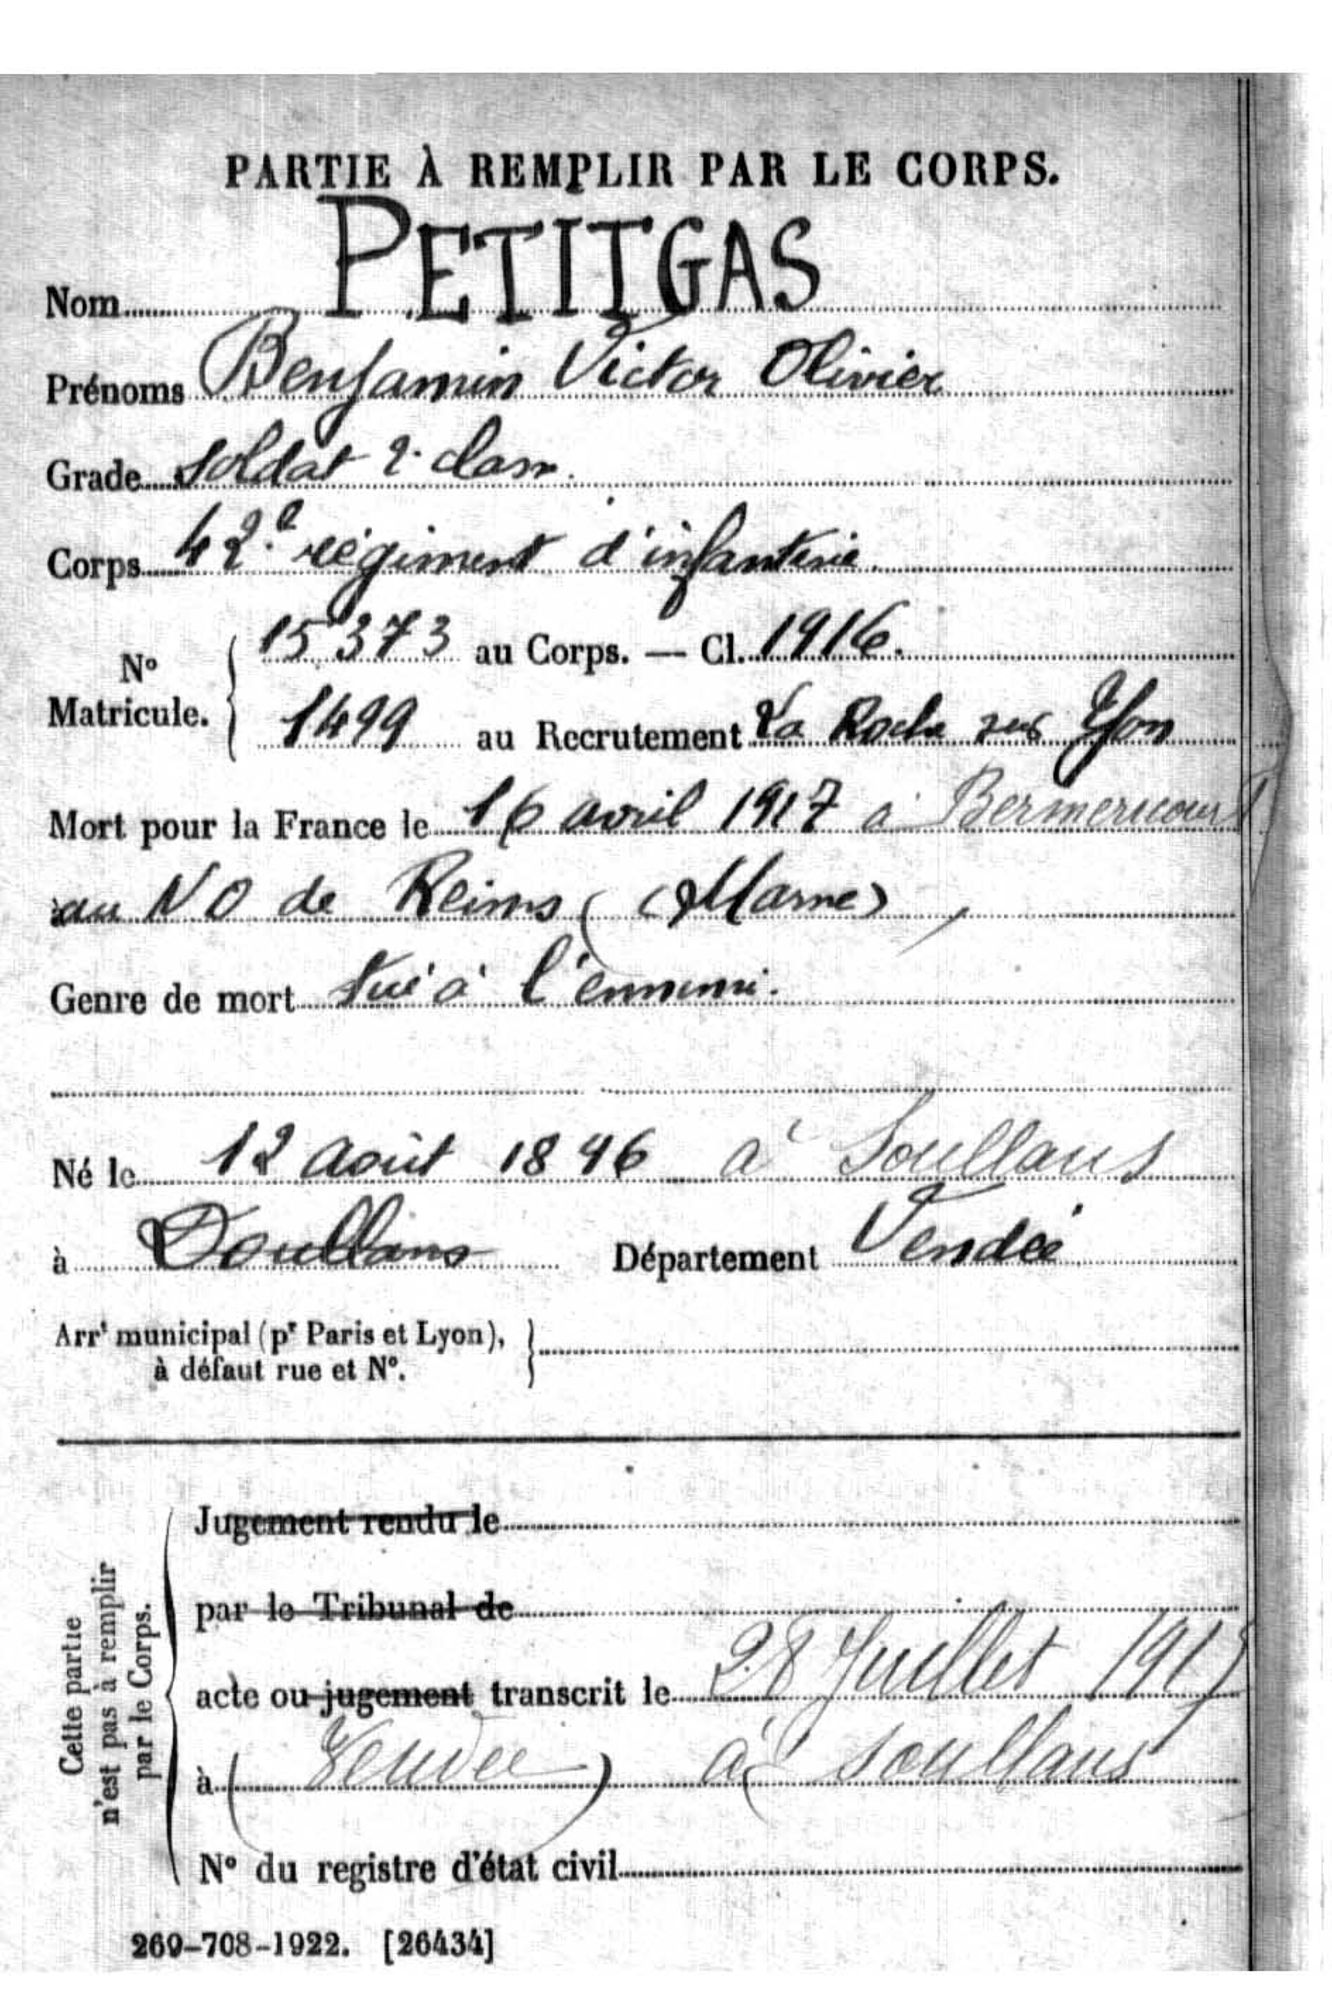 PARTIE À REMPLIR PAR LE CORPS.
Nom PETITGAS
Prénoms Benjamin Victor Olivier
Grade soldat 2e classe
Corps 42.e régiment d'infanterie.
N° Matricule. { 15373 au Corps. — Cl. 1916.
1499 au Recrutement La Roche sur Yon
Mort pour la France le 16 avril 1917 à Bermericourt
au NO de Reims (Marne),
Genre de mort tué à l'ennemi.
Né le 12 août 1896 à Soullans
à Doullans Département Vendée
Arrt municipal (pr Paris et Lyon),
à défaut rue et N°.
Cette partie n'est pas à remplir par le Corps.
Jugement rendu le
par le Tribunal de
acte ou jugement transcrit le 28 Juillet 1917
à (Vendée) à Soullans
N° du registre d'état civil
269-708-1922. [26434]